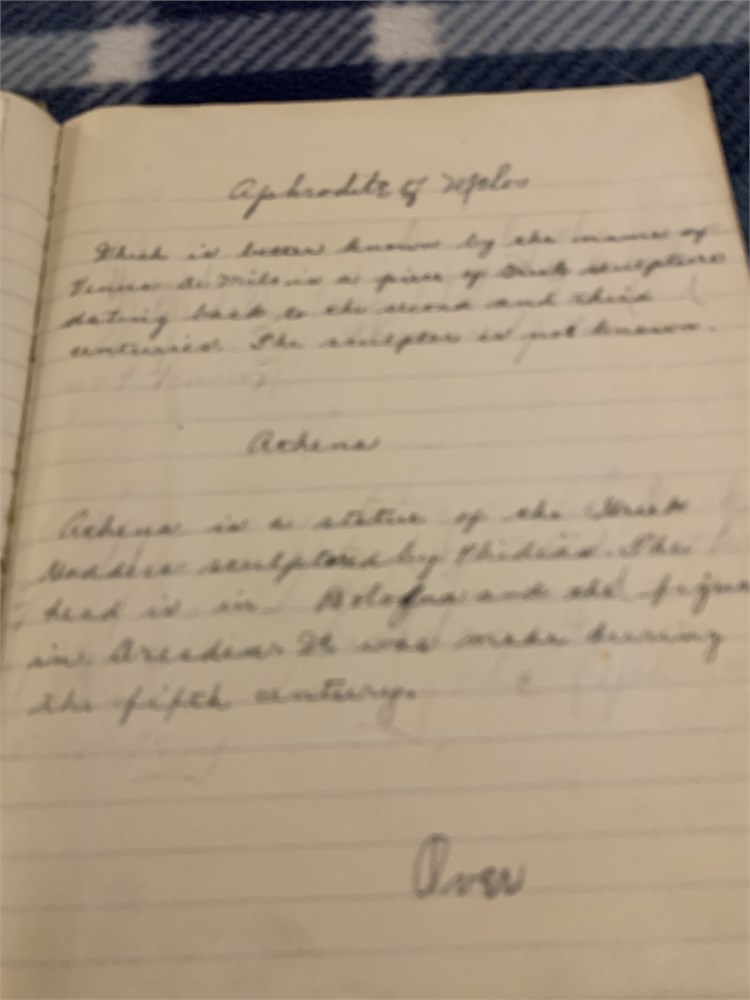 Aphrodite of Melos
Which is better known by the name of
Venus de Milo is a piece of Greek sculpture
dating back to the second and third
centuries. The sculptor is not known.
Athena
Athena is a statue of the Greek
Goddess sculptored by Phidias. The
head is in Bologna and the figure
in Dresden. It was made during
the fifth century.
Over